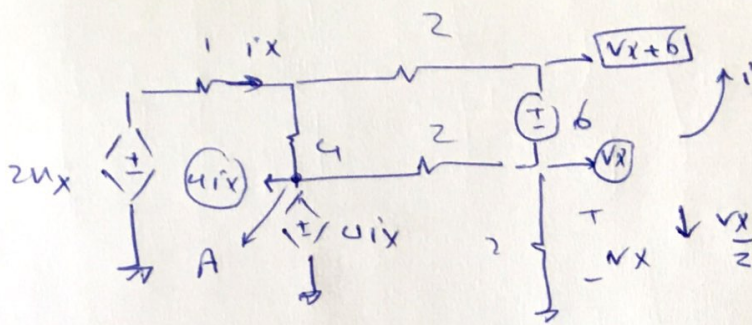 1 ix 2
Vx+6
i
+
-
6
2Vx
+
-
4ix
4
2
Vx
+
-
4ix
A
2
+
Vx
-
Vx
2